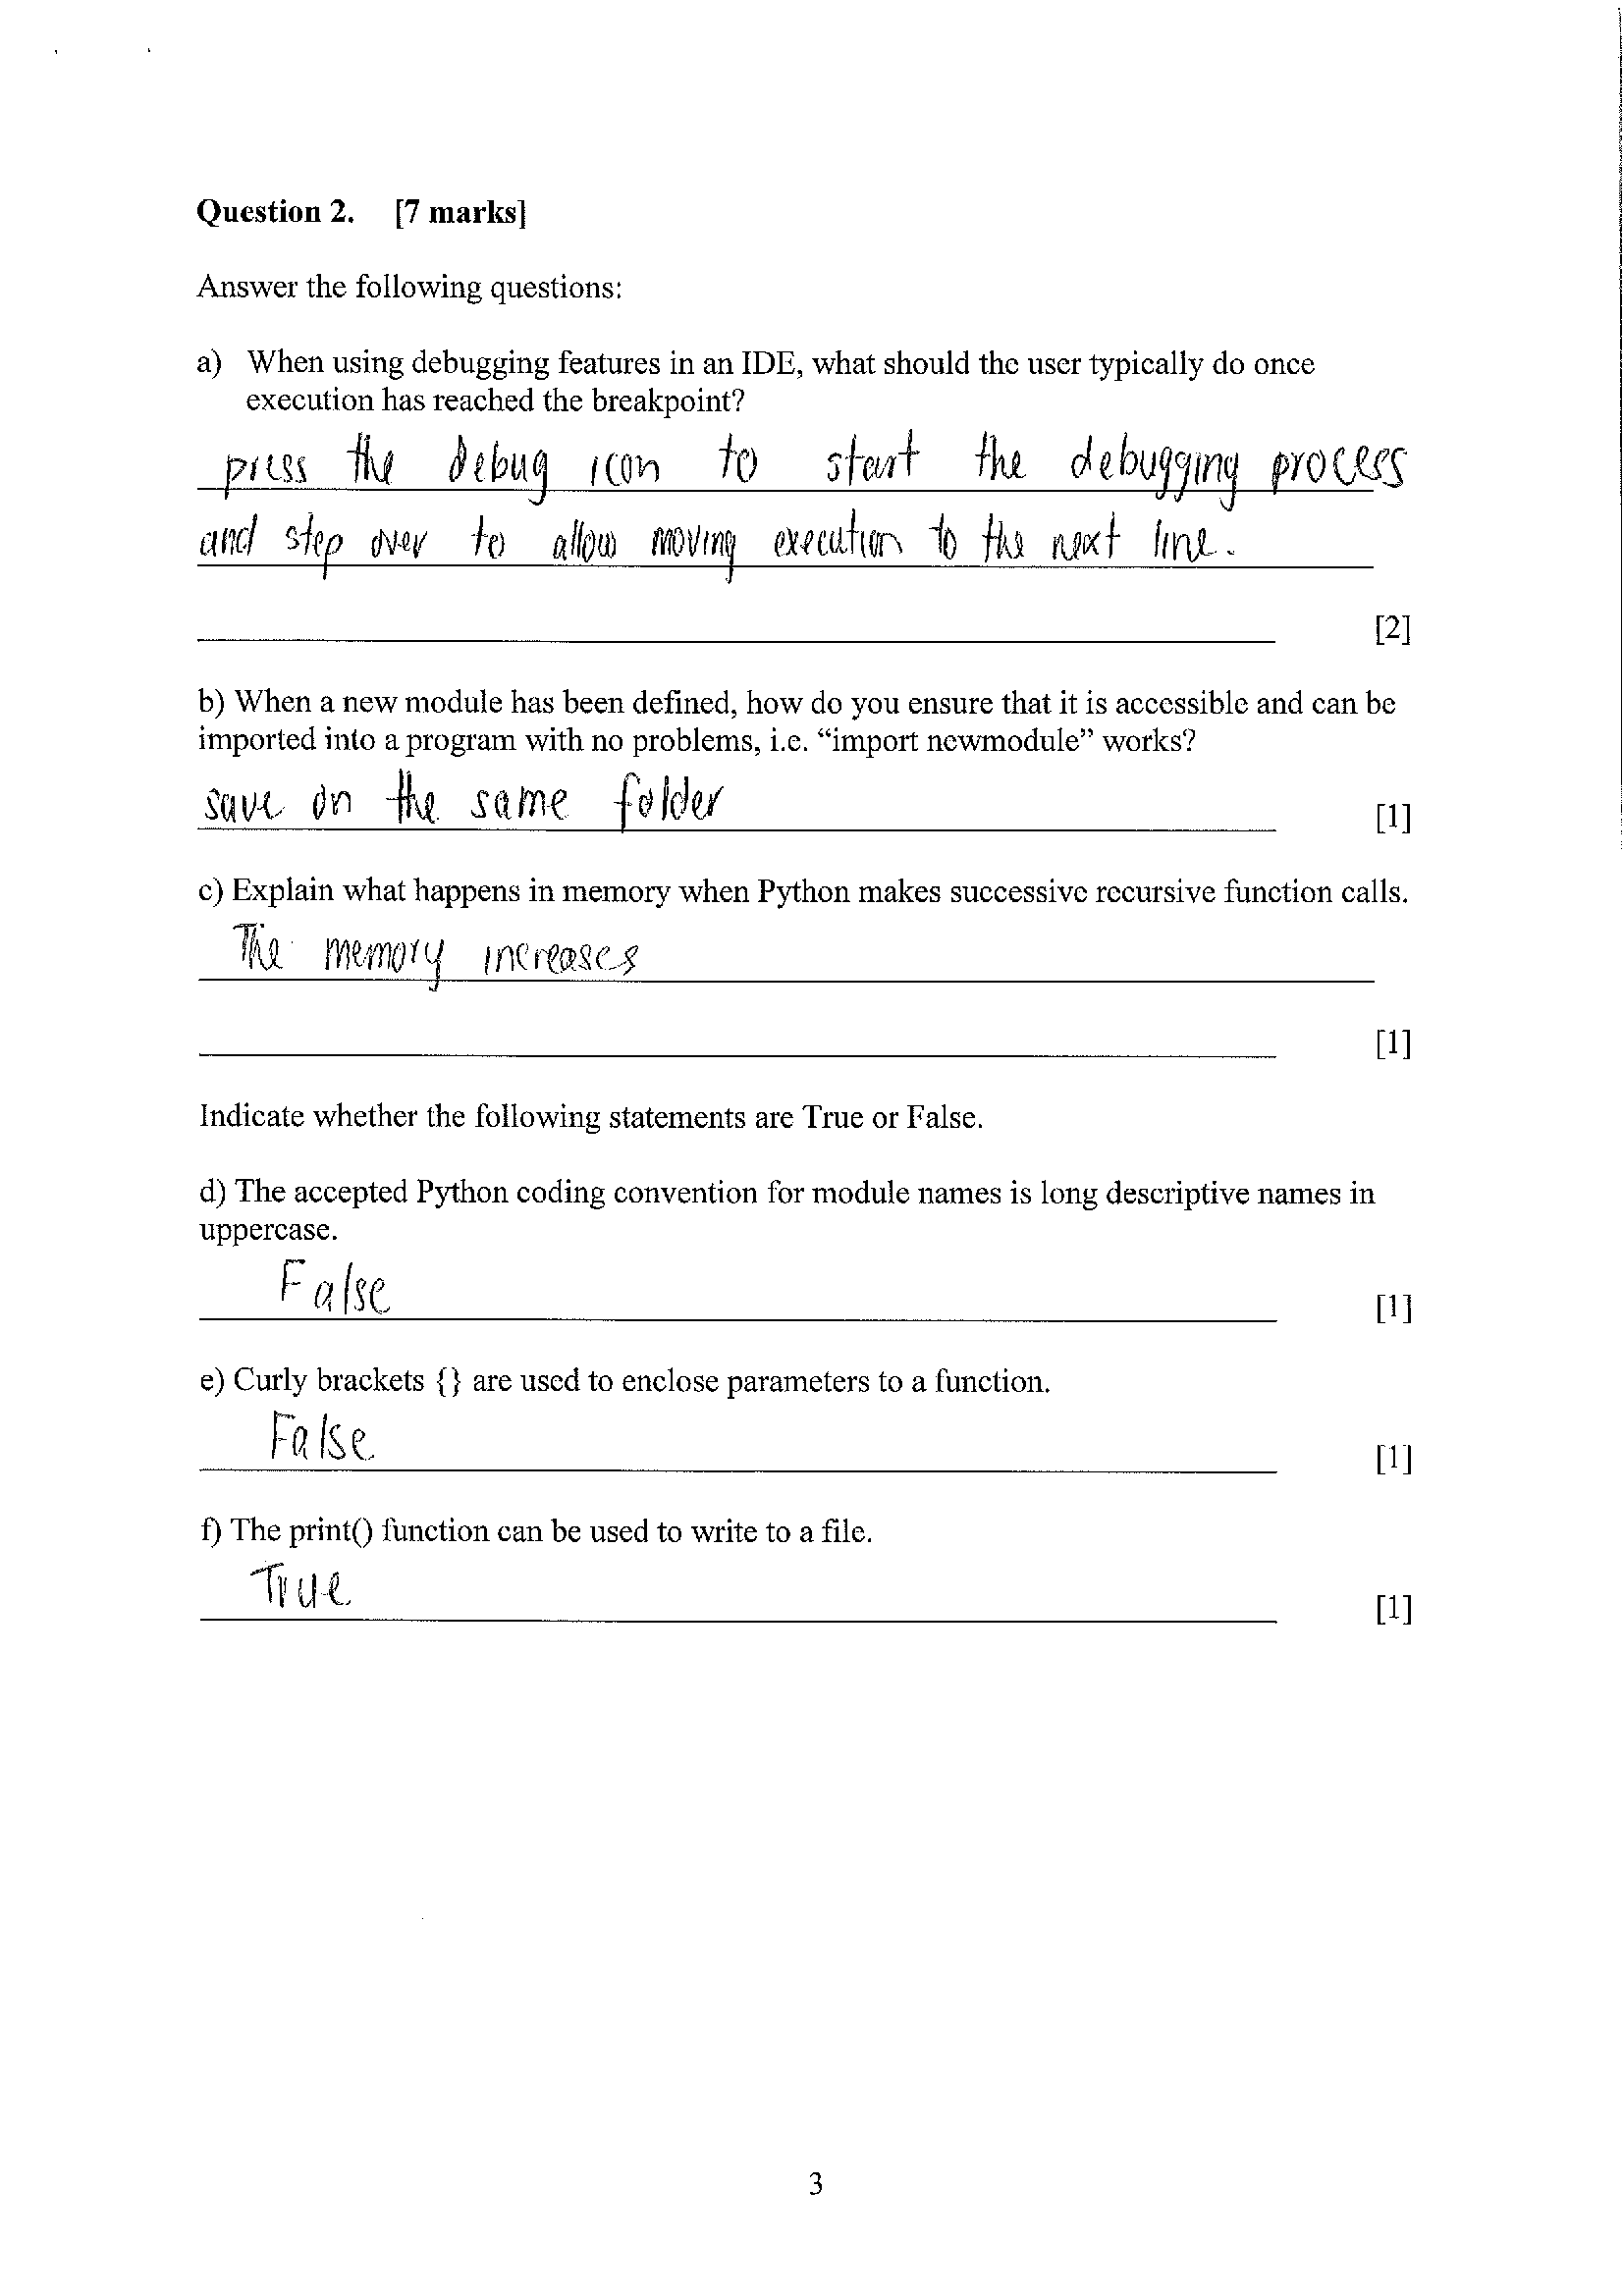 Question 2. [7 marks]
Answer the following questions:
a) When using debugging features in an IDE, what should the user typically do once
execution has reached the breakpoint?
press the debug icon to start the debugging process
and step over to allow moving execution to the next line.
[2]
b) When a new module has been defined, how do you ensure that it is accessible and can be
imported into a program with no problems, i.e. “import newmodule” works?
save on the same folder
[1]
c) Explain what happens in memory when Python makes successive recursive function calls.
The memory increases
[1]
Indicate whether the following statements are True or False.
d) The accepted Python coding convention for module names is long descriptive names in
uppercase.
False
[1]
e) Curly brackets {} are used to enclose parameters to a function.
False
[1]
f) The print() function can be used to write to a file.
True
[1]
3